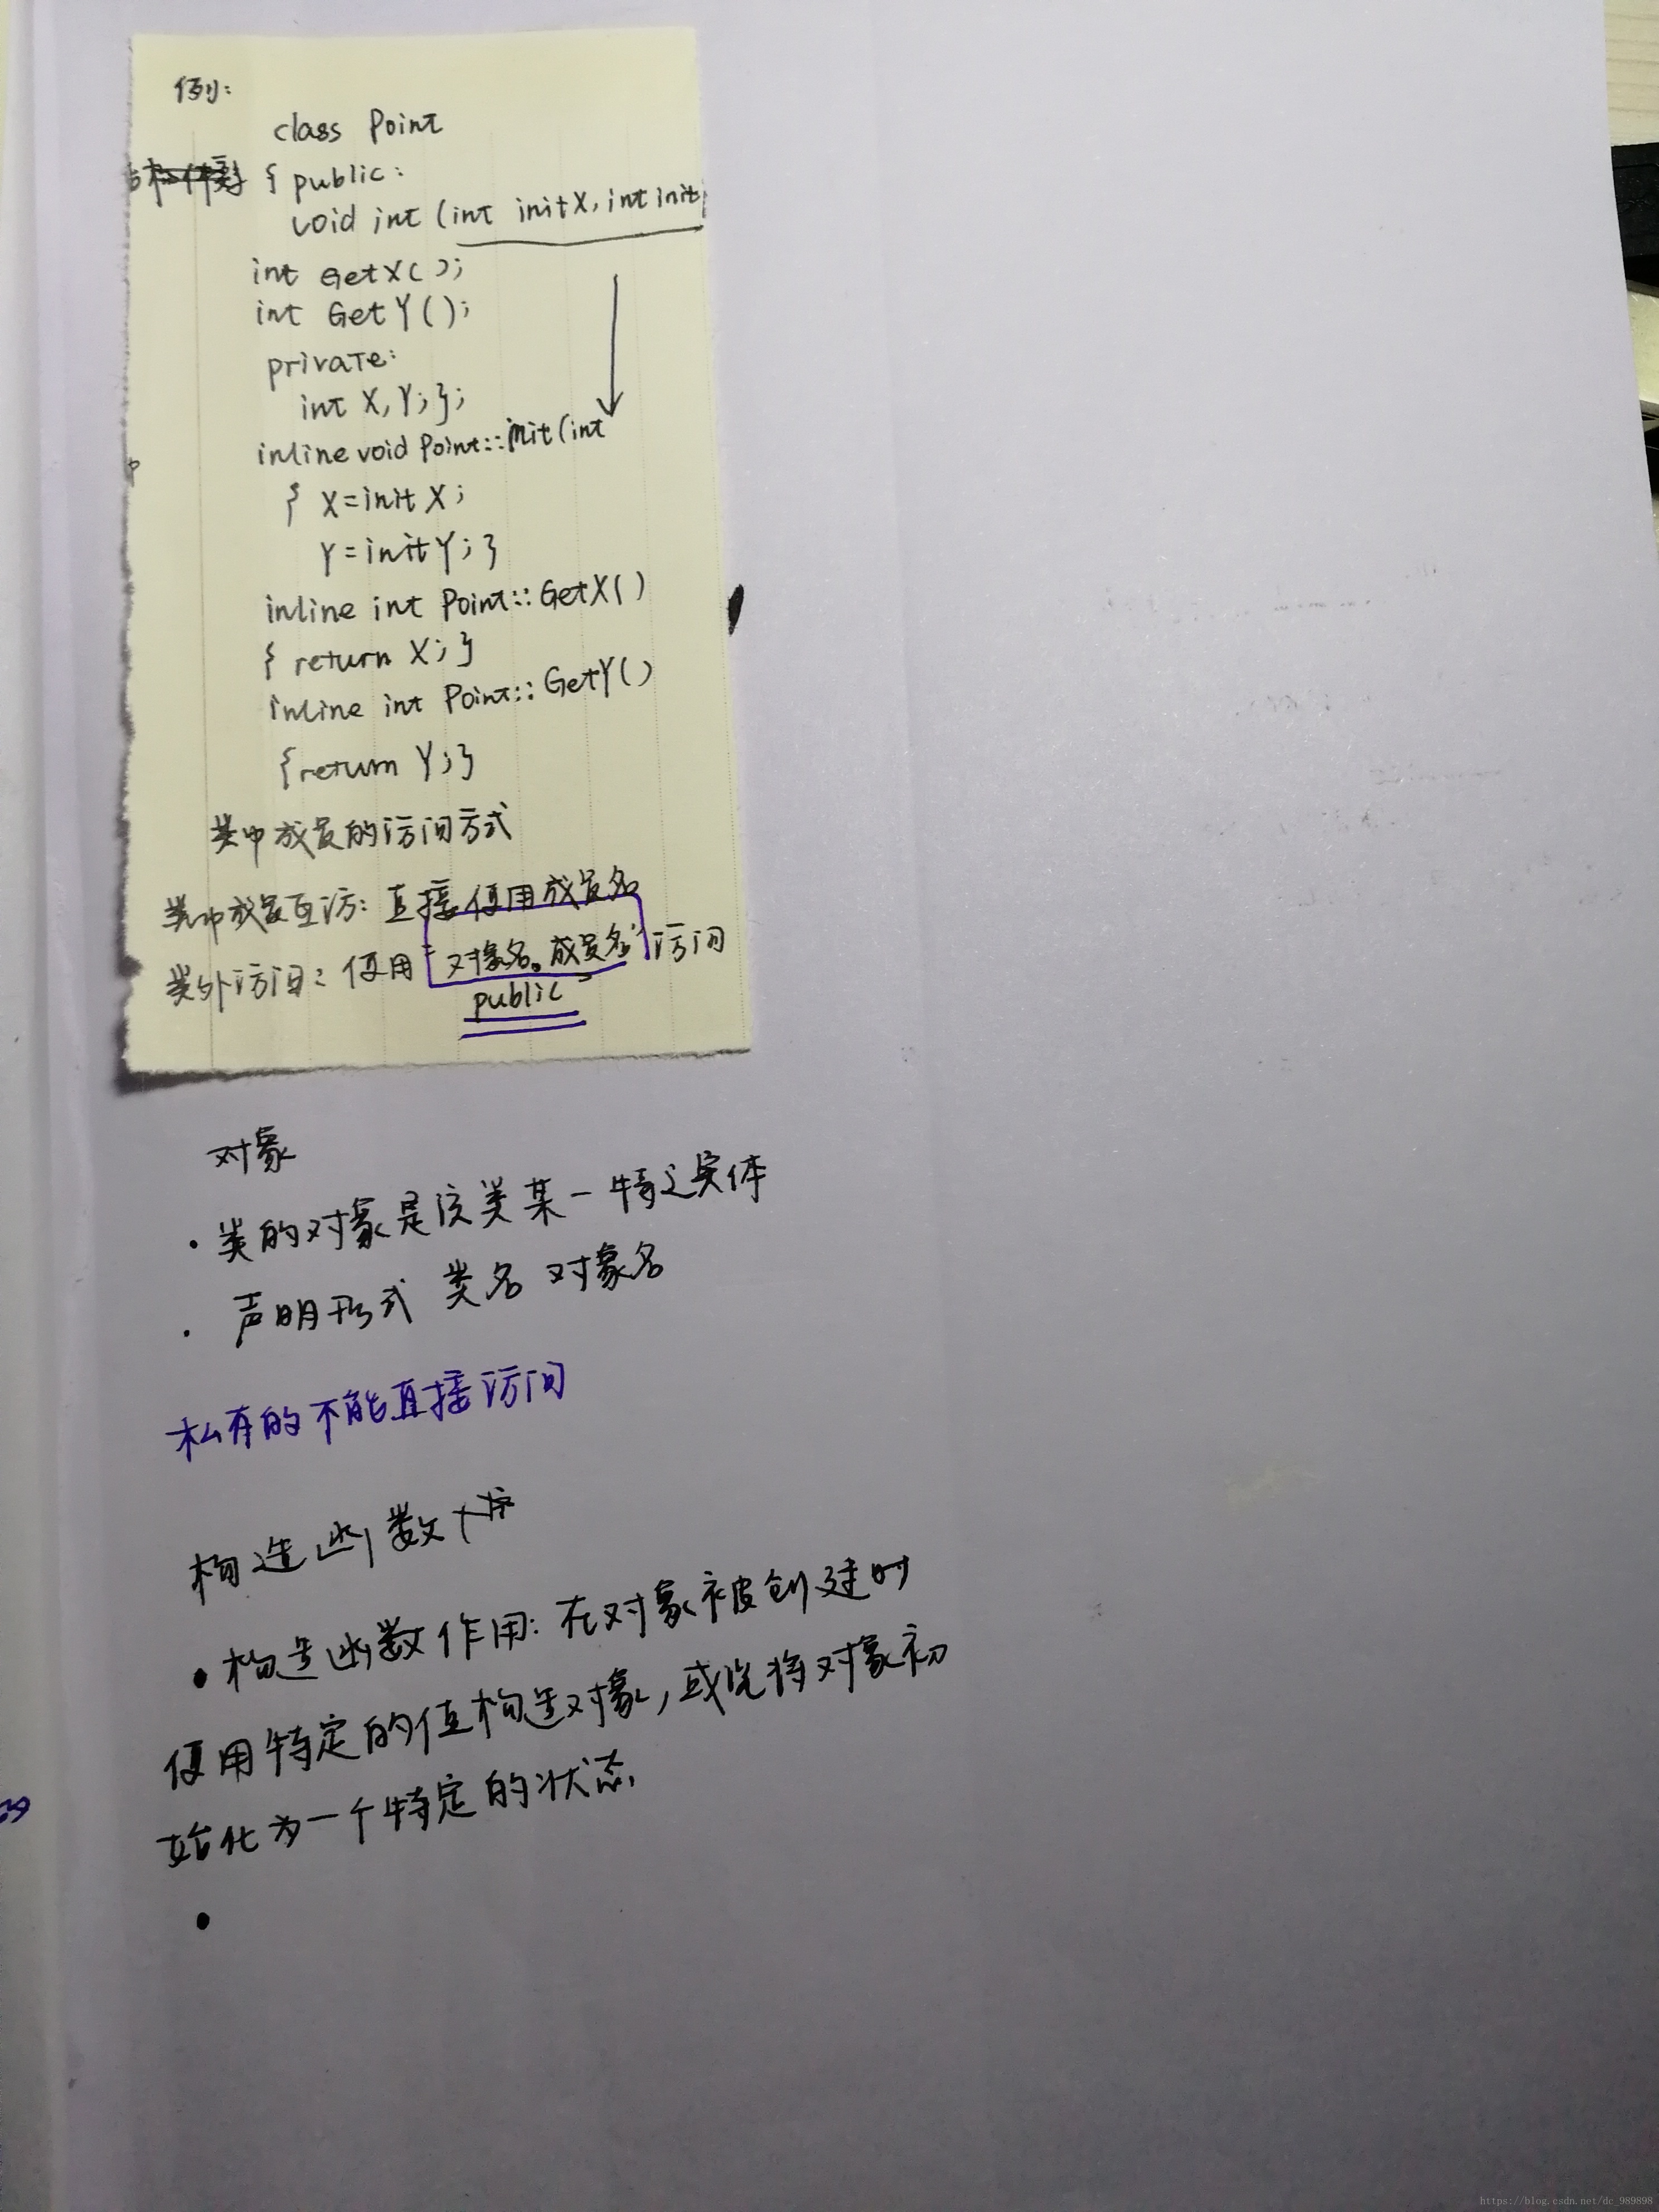 例:
class Point
{ public:
void int (int initX, int init
int GetX();
int GetY();
private:
int X, Y; };
inline void Point::init(int
{ X=initX;
Y=initY; }
inline int Point::GetX()
{ return X; }
inline int Point::GetY()
{return Y;}
类中成员的访问方式
类中成员互访: 直接使用成员名
类外访问: 使用"对象名。成员名"访问
public
对象
·类的对象是该类某一特定实体
· 声明形式 类名 对象名
私有的不能直接访问
构造函数
·构造函数作用: 在对象被创建时
使用特定的值构造对象, 或者将对象初
始化为一个特定的状态.
·
https://blog.csdn.net/dc_989898